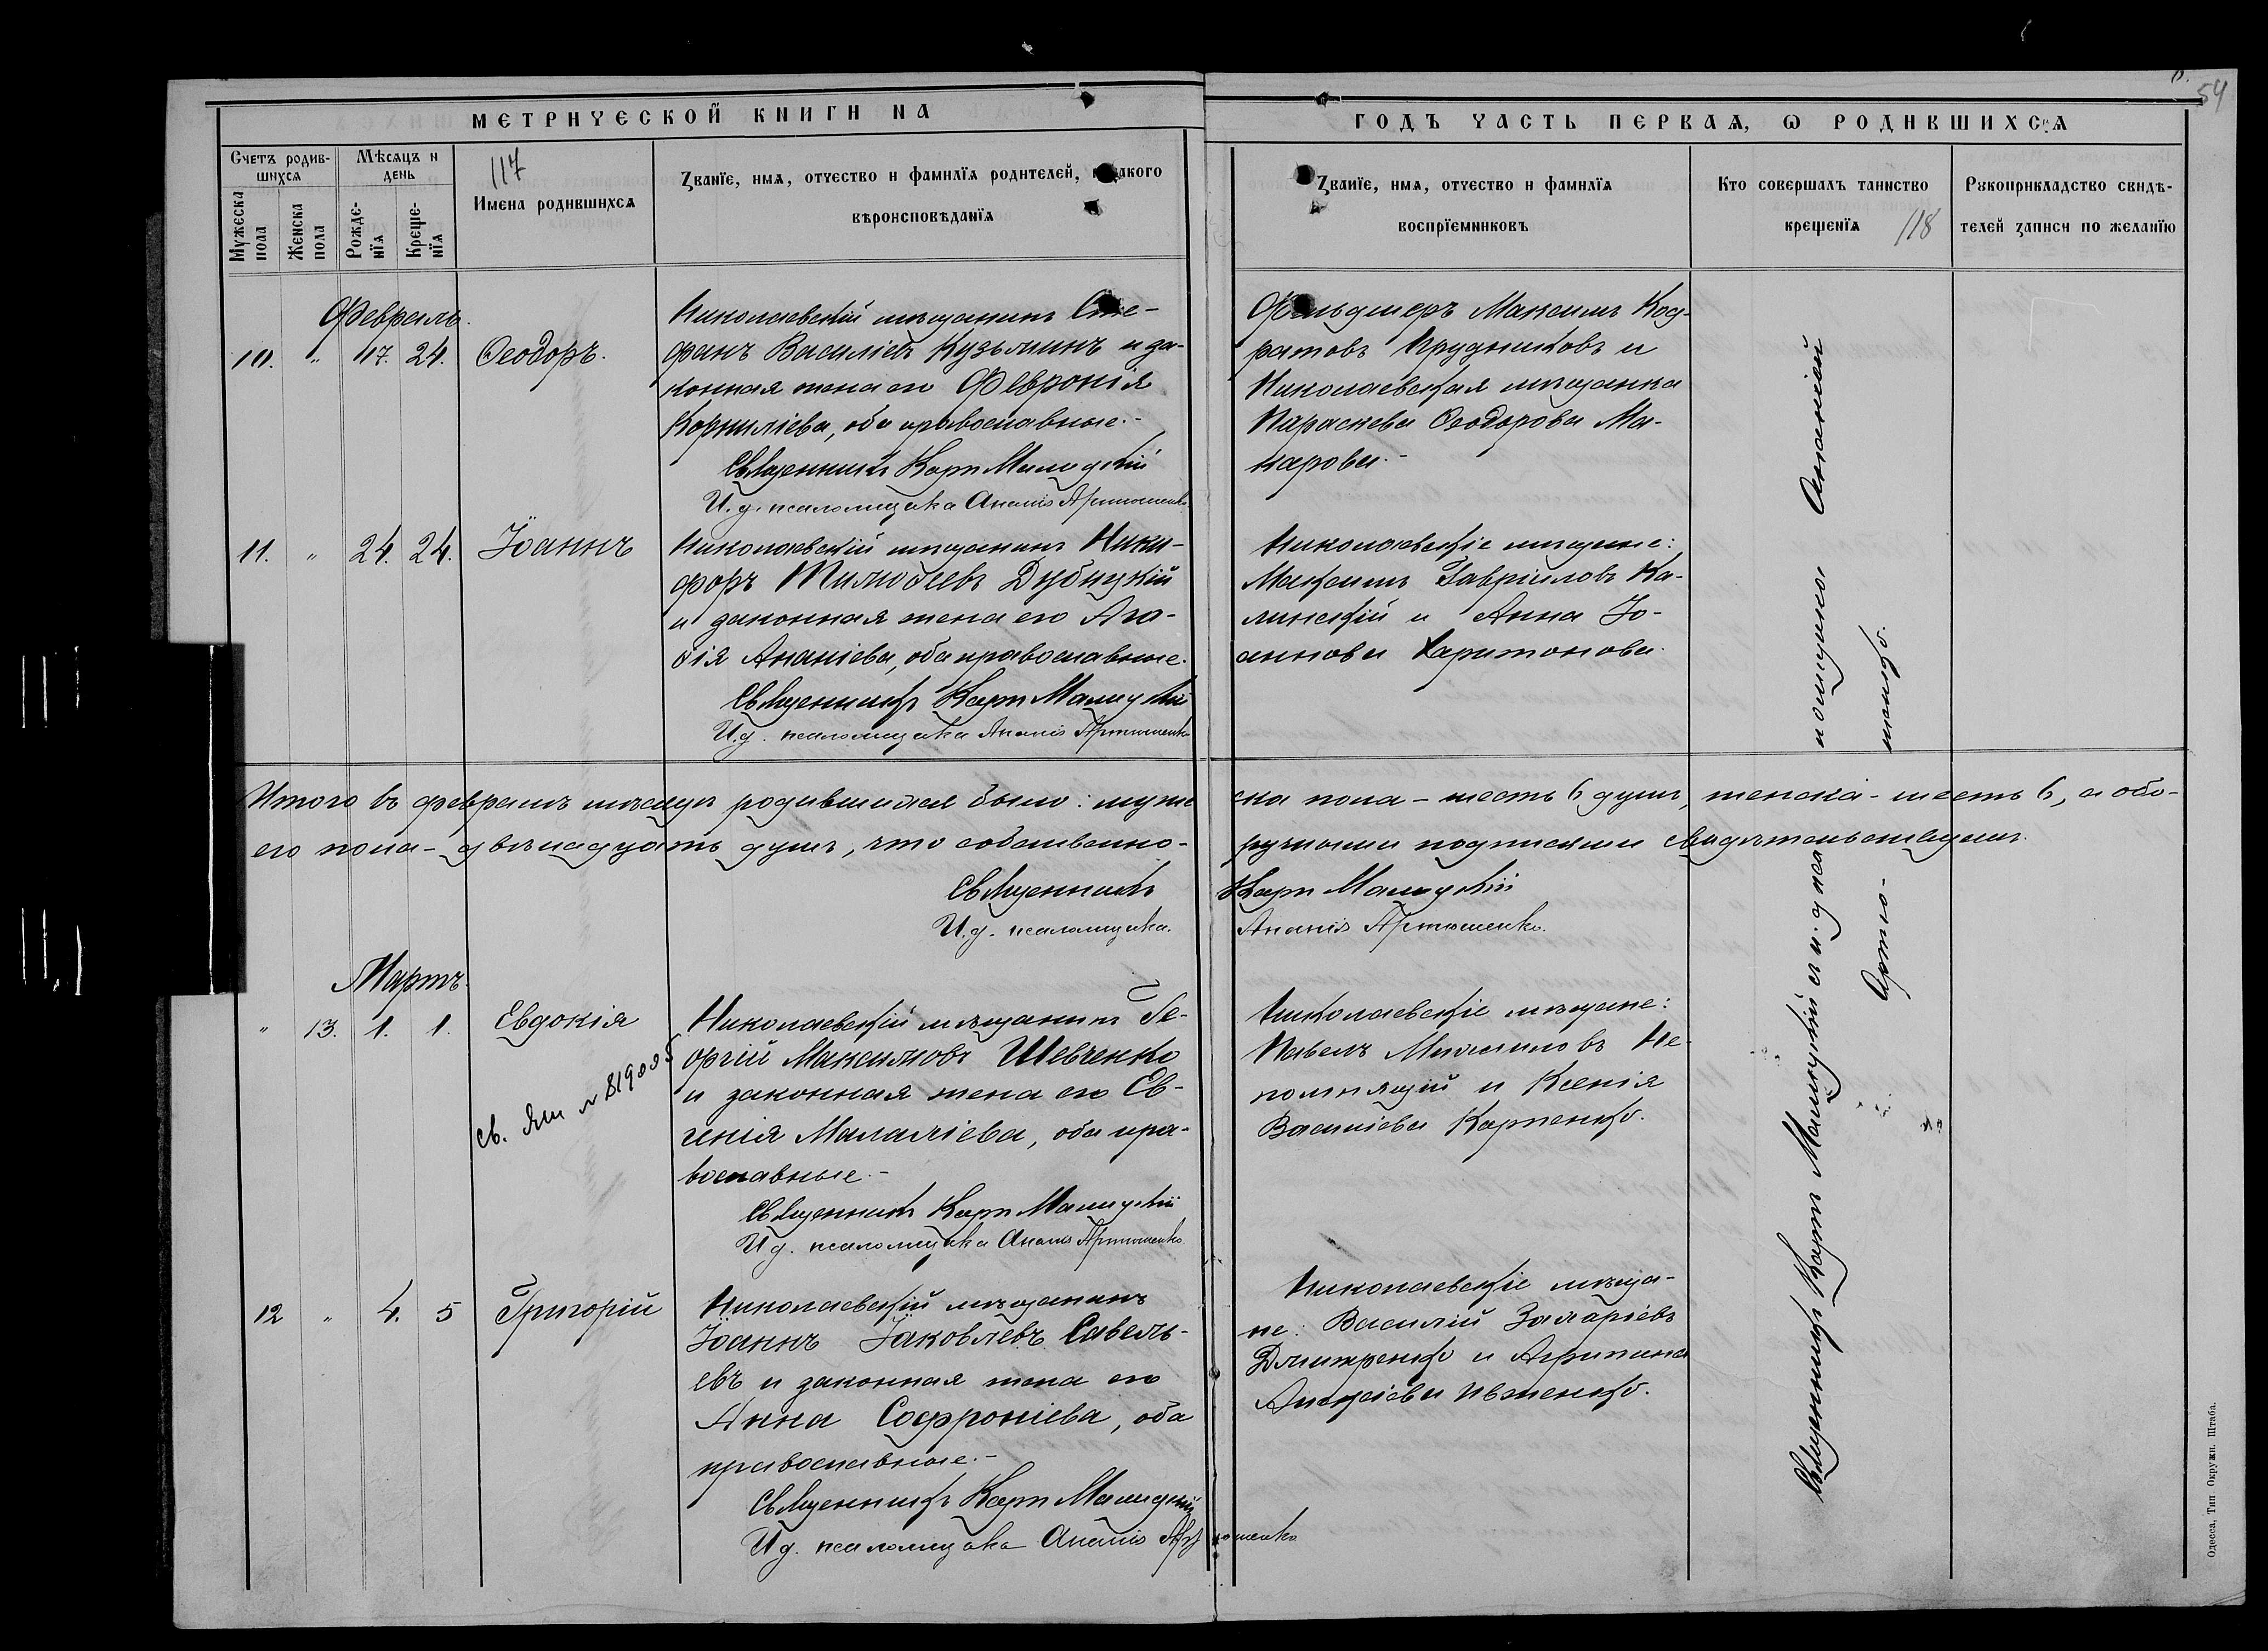 54
МЕТРИЧЕСКОЙ КНИГИ НА
ГОДЪ ЧАСТЬ ПЕРВАЯ, Ѡ РОДИВШИХСЯ
Счетъ родив-
шихся
Мужеска
пола
Женска
пола
Мѣсяцъ и
день
Рожде-
нїя
Креще-
нїя
117
Имена родившихся
Званїе, имя, отчество и фамилїя родителей, и какого
вѣроисповѣданїя
Званїе, имя, отчество и фамилїя
воспрїемниковъ
Кто совершалъ таинство
крещенїя 118
Рукоприкладство свидѣ-
телей записи по желанїю
Февраль.
10. " 17. 24. Ѳеодоръ.
Николаевскій мѣщанинъ Сте-
фанъ Василіевъ Кузьминъ и за-
конная жена его Февронія
Корниліева, оба православные.-
Священникъ Карпъ Малицкій
И. д. псаломщика Ананія Артюшенко
Фельдшеръ Максимъ Код-
ратовъ Прудниковъ и
Николаевская мѣщанка
Параскева Ѳеодорова Ма-
карова.-
11. " 24. 24. Іоаннъ
Николаевскій мѣщанинъ Ники-
форъ Тимоѳеевъ Дубицкій
и законная жена его Ага-
ѳія Ананіева, оба православные.
Священникъ Карпъ Малицкій
И. д. псаломщика Ананія Артюшенко
Николаевскіе мѣщане:
Максимъ Гавріиловъ Ка-
линскій и Анна Іо-
аннова Харитонова.
Итого въ февралѣ мѣсяцѣ родившихся было: муже
ска пола - шесть 6 душъ, женска - шесть 6, а обо-
его пола - двѣнадцать душъ, что собственно-
ручными подписями свидѣтельствуемъ.
Священникъ Карпъ Малицкій
И. д. псаломщика. Ананія Артюшенко.
Мартъ.
" 13. 1. 1. Евдокія
св. № 819005
Николаевскій мѣщанинъ Ге-
оргій Максимовъ Шевченко
и законная жена его Ев-
генія Малахіева, оба пра-
вославные.-
Священникъ Карпъ Малицкій
И д. псаломщика Ананія Артюшенко
Николаевскіе мѣщане:
Павелъ Не-
помнящій и Ксенія
Василіева Карпенко.
12 " 4. 5 Григорій
Николаевскій мѣщанинъ
Іоаннъ Іаковлевъ Савель-
евъ и законная жена его
Анна Софроніева, оба
православные.-
Священникъ Карпъ Малицкій
И д. псаломщика Ананія Артюшенко
Николаевскіе мѣща-
не: Василій Захаріевъ
Дмитренко и Агрипина
Алексіева Ивженко.
Священникъ Карпъ Малицкій и и. д. пса
ломщика Ананій
Артю-
шенко.
Одесса, Тип Окружн. Штаба.